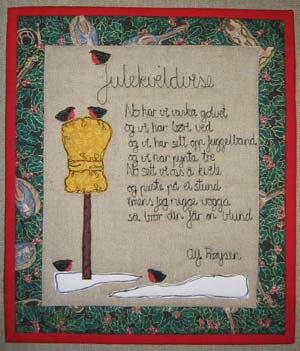 Julekveldvise
No har vi vaska golvet
og vi har børi ved
og vi har sett opp fuggelband
og vi har pynta tre
No sett vi oss å kvile
og puste på ei stund
imens jeg rugge vogga
så bror din får en blund
Alf Prøysen